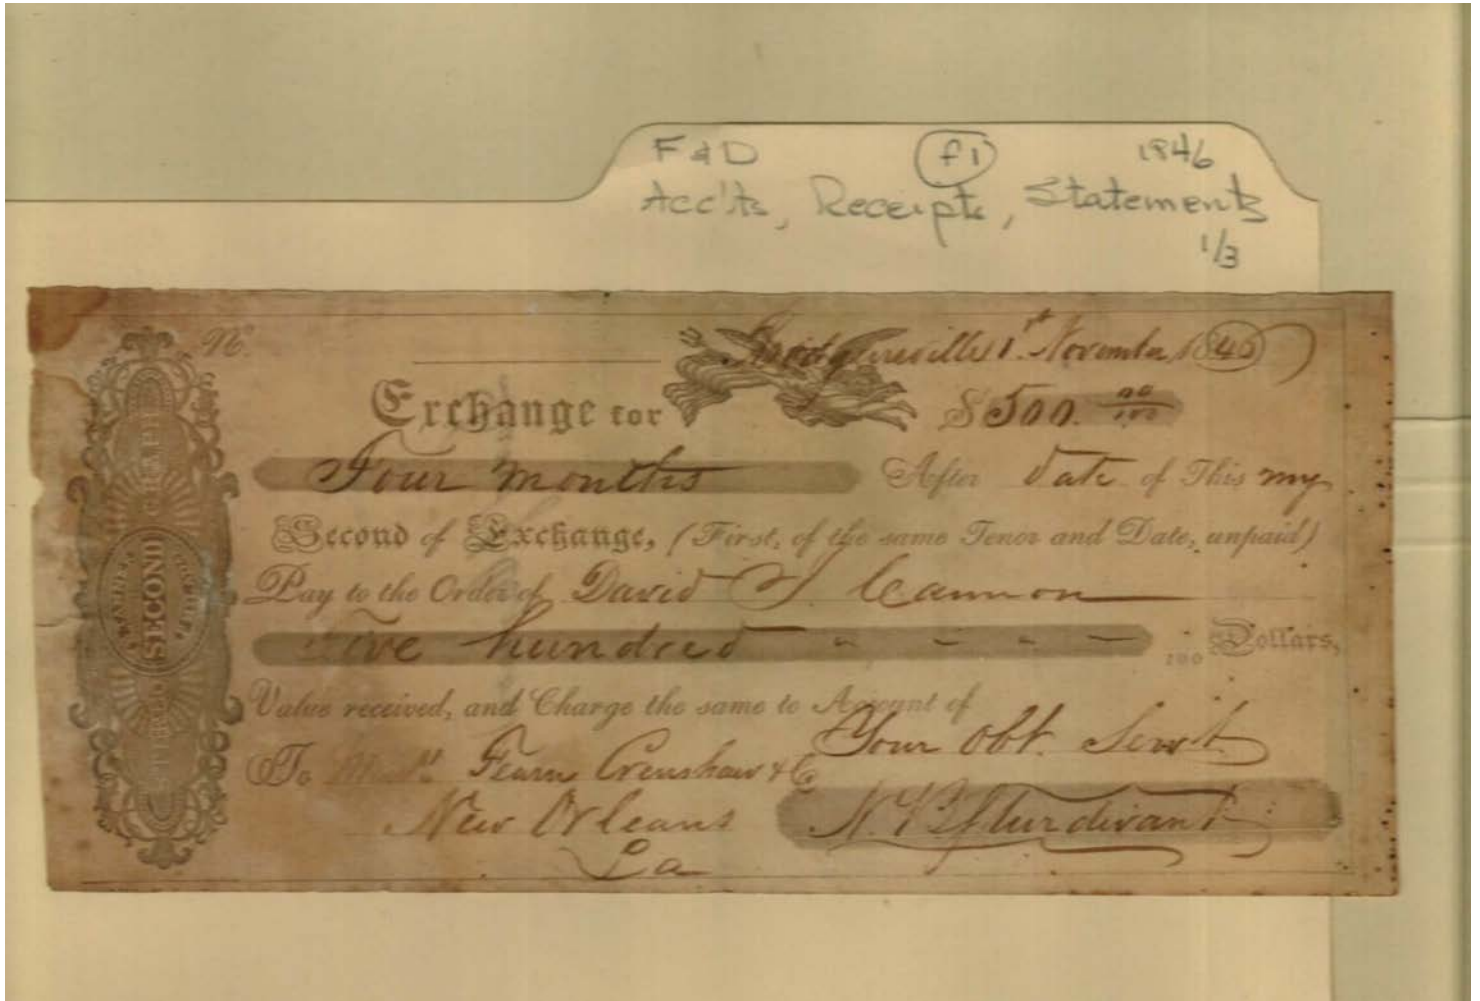 F & D (f1) 1846
Acc'ts, Receipts, Statements
1/3
No.
1st November 1846
Exchange for $500. 00/100
Four months After date of This my
Second of Exchange, (First, of the same Tenor and Date, unpaid)
Pay to the Order of David Cannon
Five hundred - - - - 100 Dollars,
Value received, and Charge the same to Account of
Your Obt. Servt
To Messrs Fearn Crenshaw & Co
New Orleans N. P. Sturdivant
La
SECOND